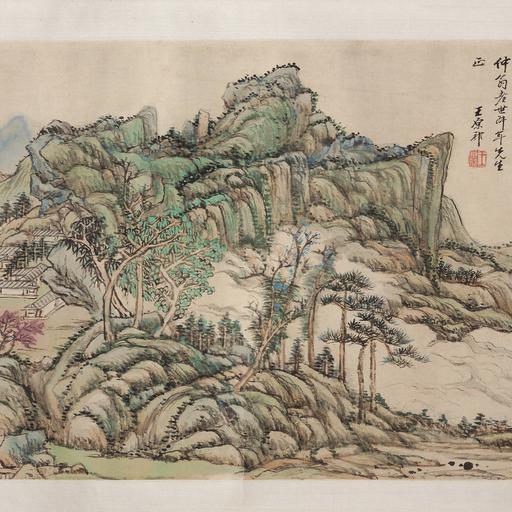 仲翁老世年先生
正 王原祁